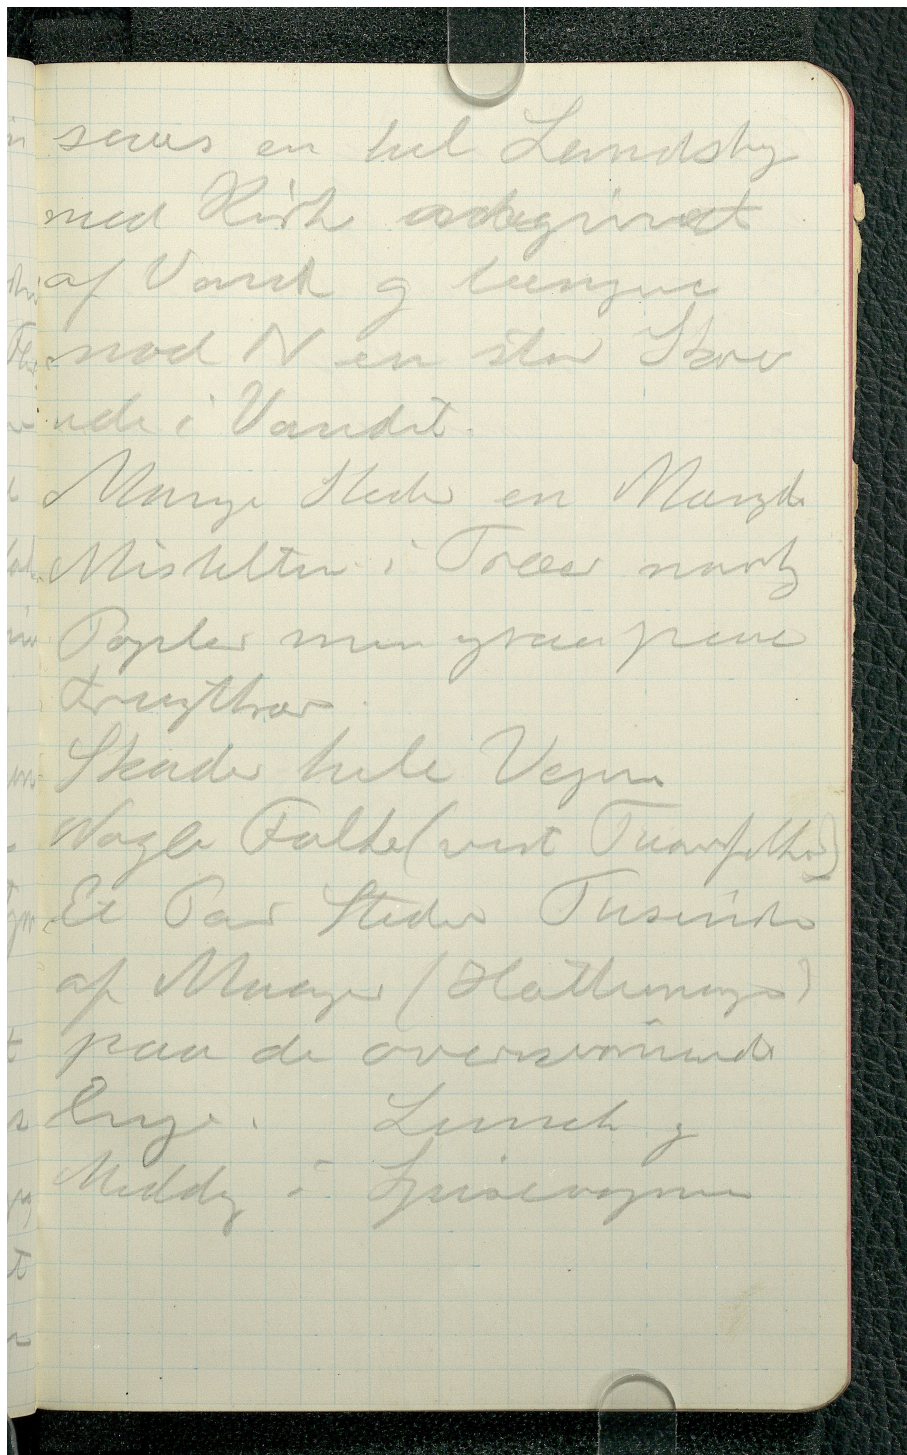 saaes en hel Landsby
med Kirke omgivet
af Vand og længere
mod N en stor Skov
ude i Vandet.
Mange Steder en Mængde
Mistelten i Træer navnlig
Popler men ogsaa pæne
Frugttræer
Skader hele Vejen
Nogle Falke (vist Taarnfalke)
Et Par Steder Tusinder
af Maager (Hættemaage)
paa de oversvømmede
Enge. Lunch og
Middag i Spisevognen